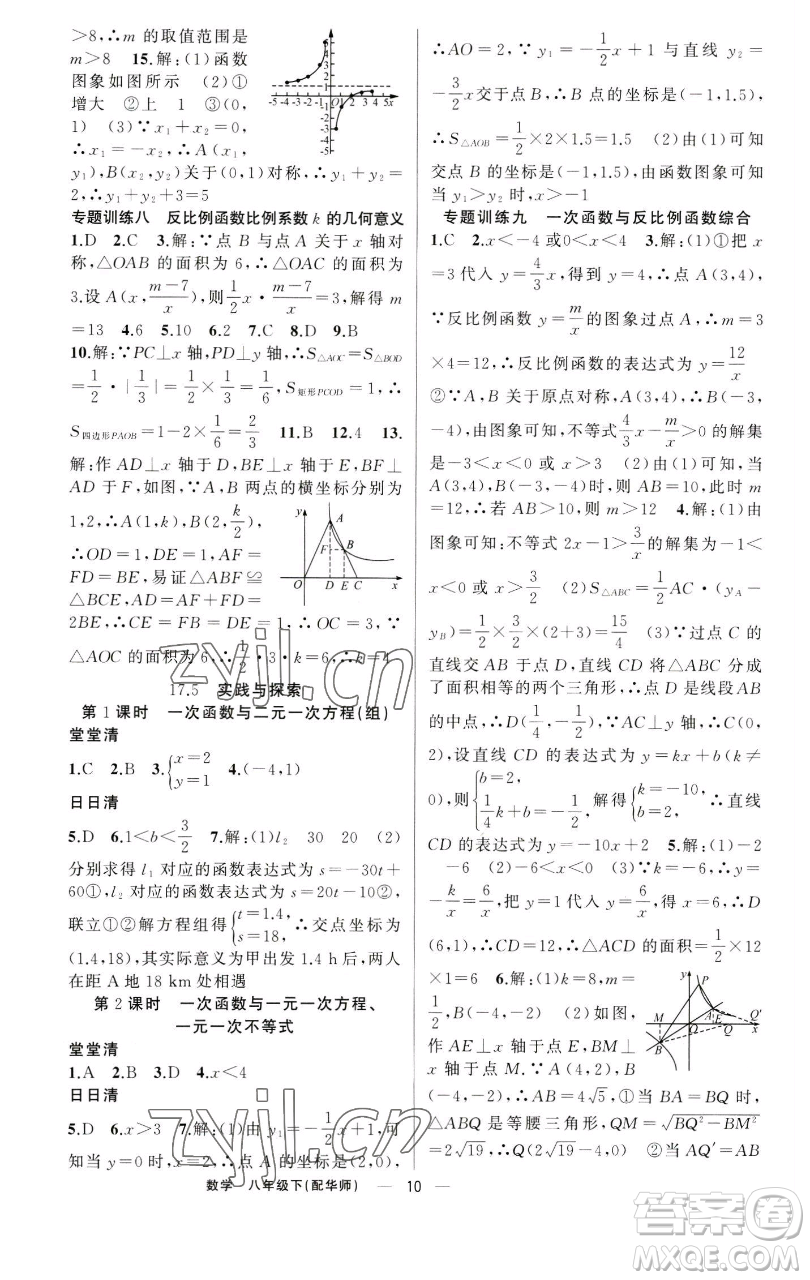 >8,∴m 的取值范围是
m>8　15.解:(1)函数
图象如图所示　(2)①
增大　②上　1　③(0,
1)　(3)∵x₁+x₂=0,
∴x₁=-x₂,∴A(x₁,
y₁),B(x₂,y₂)关于(0,1)对称,∴y₁+y₂=
2,∴y₁+y₂+3=5
专题训练八　反比例函数比例系数 k 的几何意义
1.D　2.C　3.解:∵点 B 与点 A 关于 x 轴对
称,△OAB 的面积为 6,∴△OAC 的面积为
3.设 A(x,(m-7)/x),则 1/2 x·(m-7)/x=3,解得 m
=13　4.6　5.10　6.2　7.C　8.D　9.B
10.解:∵PC⊥x 轴,PD⊥y 轴,∴S△AOC=S△BOD
=1/2·|1/3|=1/2×1/3=1/6,S矩形PCOD=1,∴
S四边形PAOB=1-2×1/6=2/3　11.B　12.4　13.
解:作 AD⊥x 轴于 D,BE⊥x 轴于 E,BF⊥
AD 于 F,如图,∵A,B 两点的横坐标分别为
1,2,∴A(1,k),B(2,k/2),
∴OD=1,DE=1,AF=
FD=BE,易证△ABF≌
△BCE,AD=AF+FD=
2BE,∴CE=FB=DE=1,∴OC=3,∵
△AOC 的面积为 6,∴1/2·3·k=6,∴k=4
17.5　实践与探索
第 1 课时　一次函数与二元一次方程(组)
堂堂清
1.C　2.B　3.{x=2 y=1　4.(-4,1)
日日清
5.D　6.1<b<3/2　7.解:(1)l₂　30　20　(2)
分别求得 l₁ 对应的函数表达式为 s=-30t+
60①,l₂ 对应的函数表达式为 s=20t-10②,
联立①②解方程组得{t=1.4, s=18,∴交点坐标为
(1.4,18),其实际意义为甲出发 1.4 h后,两人
在距 A 地 18 km 处相遇
第 2 课时　一次函数与一元一次方程、
一元一次不等式
堂堂清
1.A　2.B　3.D　4.x<4
日日清
5.D　6.x>3　7.解:(1)由 y₁=-1/2 x+1,可
知当 y=0时,x=2,∴点 A 的坐标是(2,0),
∴AO=2,∵y₁=-1/2 x+1 与直线 y₂=
-3/2 x交于点 B,∴B 点的坐标是(-1,1.5),
∴S△AOB=1/2×2×1.5=1.5　(2)由(1)可知
交点 B 的坐标是(-1,1.5),由函数图象可知
当 y₁>y₂ 时,x>-1
专题训练九　一次函数与反比例函数综合
1.C　2.x<-4 或0<x<4　3.解:(1)①把 x
=3代入 y=4/3 x,得到 y=4,∴点 A(3,4),
∵反比例函数 y=m/x 的图象过点 A,∴m=3
×4=12,∴反比例函数的表达式为 y=12/x
②∵A,B 关于原点对称,A(3,4),∴B(-3,
-4),由图象可知,不等式 4/3 x-m/x>0 的解集
是-3<x<0 或 x>3　(2)由图象可知,当
A(3,4),B(-3,-4)时,则 AB=10,此时 m
=12,∴若 AB>10,则 m>12　4.解:(1)由
图象可知:不等式 2x-1>3/x 的解集为-1<
x<0 或 x>3/2　(2)S△ABC=1/2 AC·(yA-
yB)=1/2×3/2×(2+3)=15/4　(3)∵过点 C 的
直线交 AB 于点 D,直线将△ABC 分成
了面积相等的两个三角形,∴点 D 是线段 AB
的中点,∴D(1/4,-1/2),∵AC∥y 轴,∴C(0,
2),设直线 CD 的表达式为 y=kx+b(k≠
0),则{b=2, 1/4 k+b=-1/2,解得{k=-10, b=2,∴直线
CD 的表达式为 y=-10x+2　5.解:(1)-2
-6　(2)-6<x<0　(3)∵k=-6,∴y=
-k/x=6/x,把 y=1 代入 y=6/x,得 x=6,∴D
(6,1),∴CD=12,∴△ACD 的面积=1/2×12
×1=6　6.解:(1)k=8,m=
1/2,B(-4,-2)　(2)如图,
作 AE⊥x 轴于点 E,BM⊥x
轴于点 M.∵A(4,2),B
(-4,-2),∴AB=4√5,①当 BA=BQ 时,
△ABQ 是等腰三角形,QM=√(BQ²-BM²)
=2√19,∴Q(-4+2√19,0)　②当 AQ′=AB
数学　八年级下(配华师)　—　10　—
zyjl.cn
zyjl.cn
答案圈
MXQE.COM